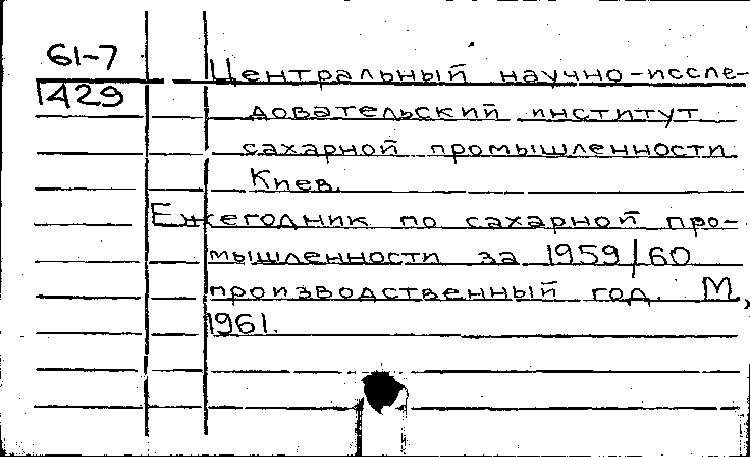 61-7
1429
Центральный научно-иссле-
довательский институт
сахарной промышленности
Киев.
Ежегодник по сахарной про-
мышленности за 1959/60
производственный год. М,
1961.